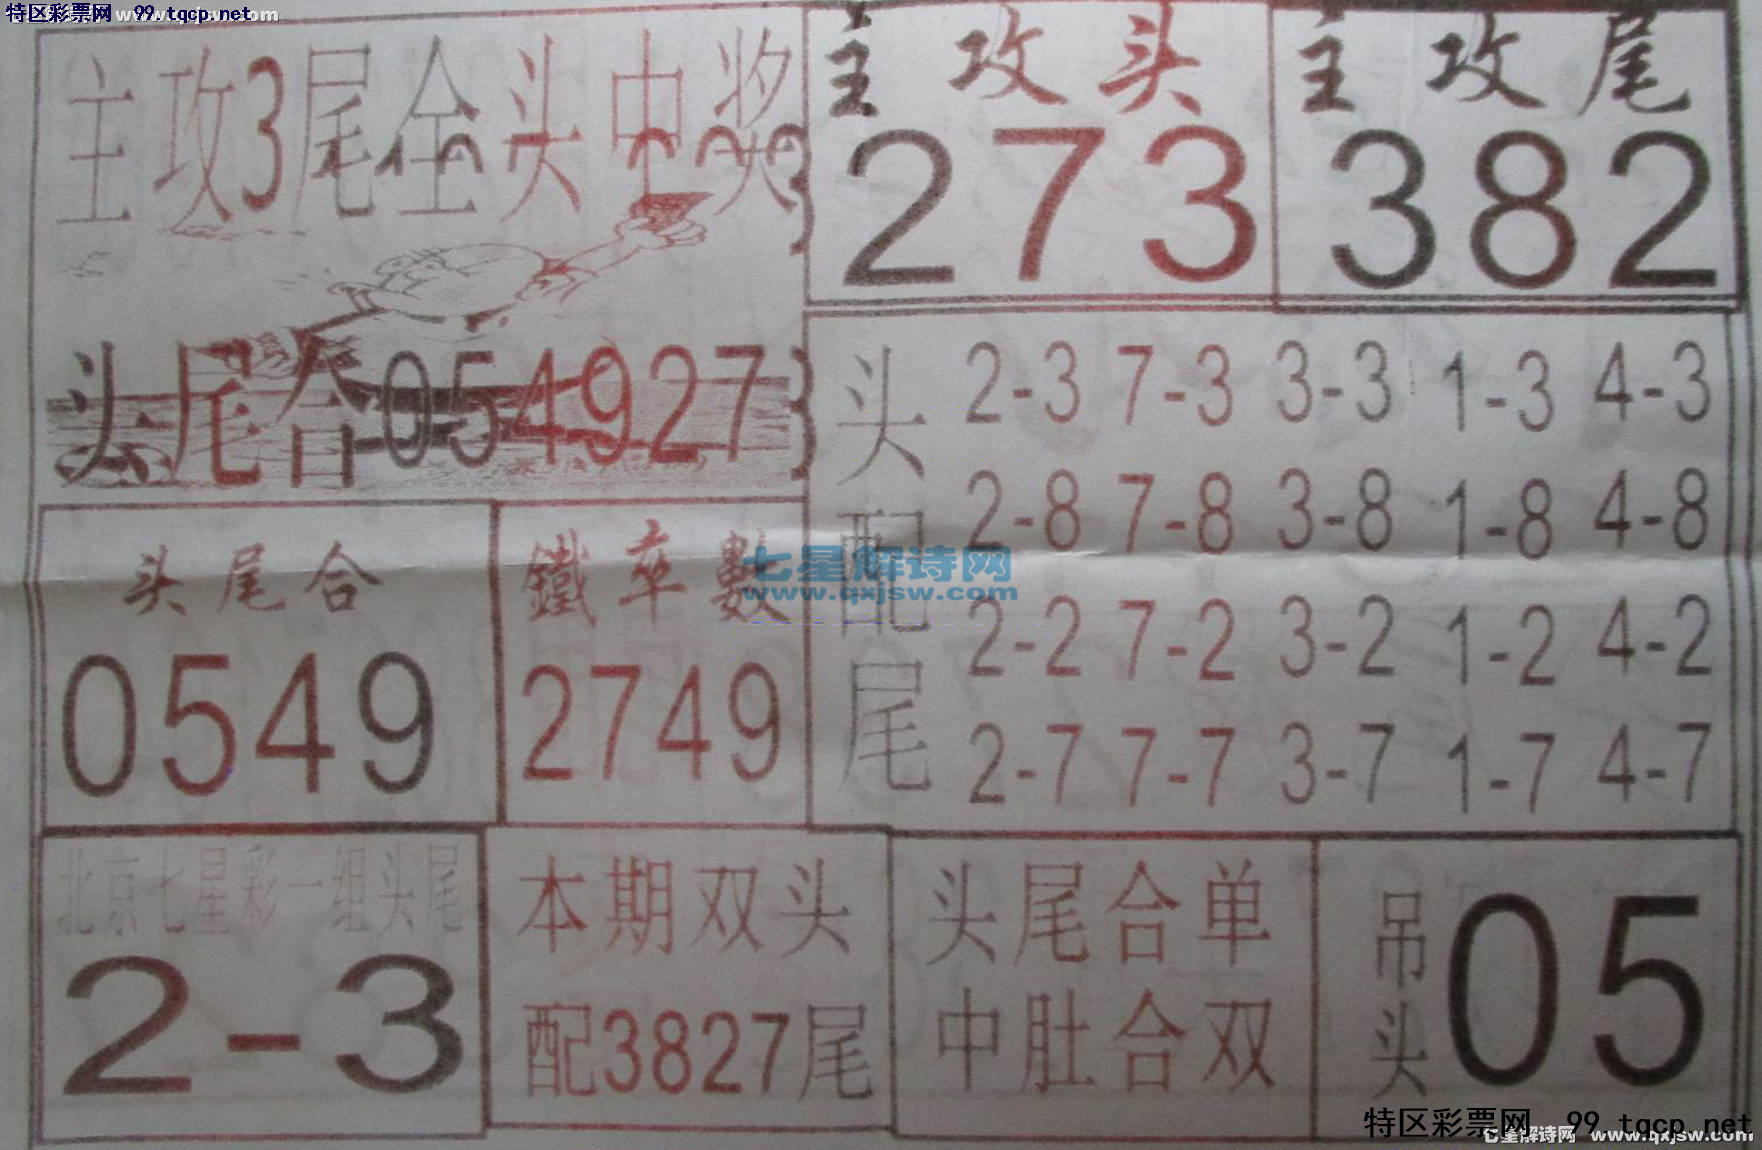 特区彩票网 99.tqcp.net
主攻3尾全头中奖
头尾合054927
主攻头
273
主攻尾
382
头配配尾
2-3 7-3 3-3 1-3 4-3
2-8 7-8 3-8 1-8 4-8
2-2 7-2 3-2 1-2 4-2
2-7 7-7 3-7 1-7 4-7
头尾合
0549
鐵卒數
2749
七星解诗网
www.qxjsw.com
北京七星彩一组头尾
2-3
本期双头
配3827尾
头尾合单
中肚合双
吊头
05
特区彩票网 99.tqcp.net
七星解诗网 www.qxjsw.com